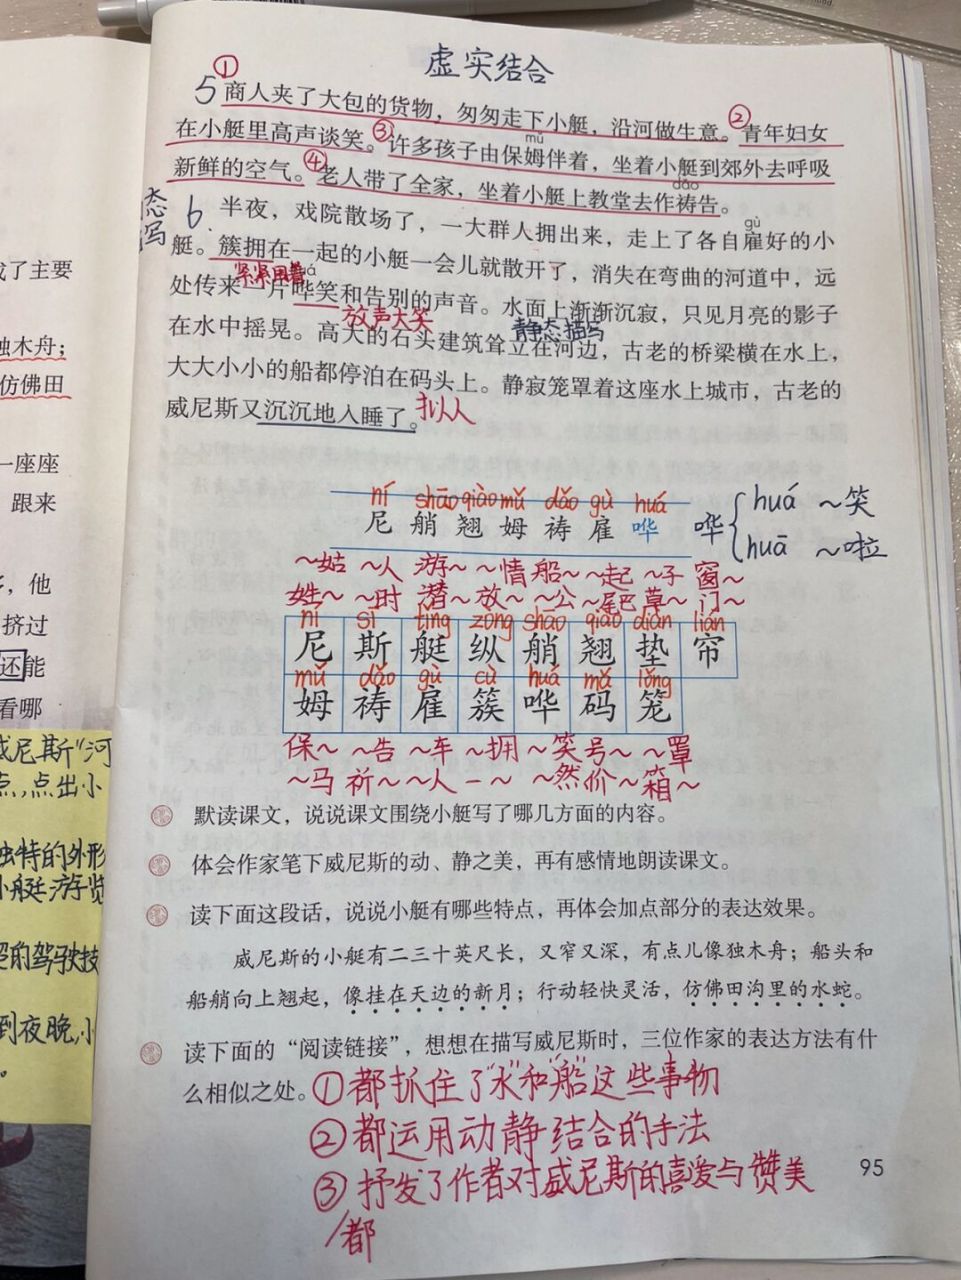 虚实结合
①
5 商人夹了大包的货物，匆匆走下小艇，沿河做生意。②青年妇女
在小艇里高声谈笑。③许多孩子由保姆伴着，坐着小艇到郊外去呼吸
mǔ
新鲜的空气。④老人带了全家，坐着小艇上教堂去作祷告。
dǎo
态写
6 半夜，戏院散场了，一大群人拥出来，走上了各自雇好的小
gù
艇。簇拥在一起的小艇一会儿就散开了，消失在弯曲的河道中，远
处传来一片哗笑和告别的声音。水面上渐渐沉寂，只见月亮的影子
放声大笑
静态描写
在水中摇晃。高大的石头建筑耸立在河边，古老的桥梁横在水上，
大大小小的船都停泊在码头上。静寂笼罩着这座水上城市，古老的
威尼斯又沉沉地入睡了。拟人
ní shāo qiào mǔ dǎo gù huá
尼 艄 翘 姆 祷 雇 哗
哗 huá ～笑
huā ～啦
～姑 ～人 游～ ～情 船～ ～起 ～子 窗～
姓～ ～时 潜～ 放～ ～公 ～尾巴 草～ 门～
ní sī tǐng zòng shāo qiào diàn lián
尼 斯 艇 纵 艄 翘 垫 帘
mǔ dǎo gù cù huá mǎ lǒng
姆 祷 雇 簇 哗 码 笼
保～ ～告 ～车 ～拥 ～笑 号～ ～罩
～马 祈～ ～人 一～ ～然 价～ ～箱
默读课文，说说课文围绕小艇写了哪几方面的内容。
体会作家笔下威尼斯的动、静之美，再有感情地朗读课文。
读下面这段话，说说小艇有哪些特点，再体会加点部分的表达效果。
威尼斯的小艇有二三十英尺长，又窄又深，有点儿像独木舟；船头和
船艄向上翘起，像挂在天边的新月；行动轻快灵活，仿佛田沟里的水蛇。
读下面的“阅读链接”，想想在描写威尼斯时，三位作家的表达方法有什
么相似之处。①都抓住了“水”和“船”这些事物
②都运用动静结合的手法
③抒发了作者对威尼斯的喜爱与赞美
都
95
成了主要
独木舟；
仿佛田
一座座
跟来
，他
挤过
还能
看哪
威尼斯“河
点，点出小
独特的外形
小艇游览
的驾驶技
到夜晚，小
。